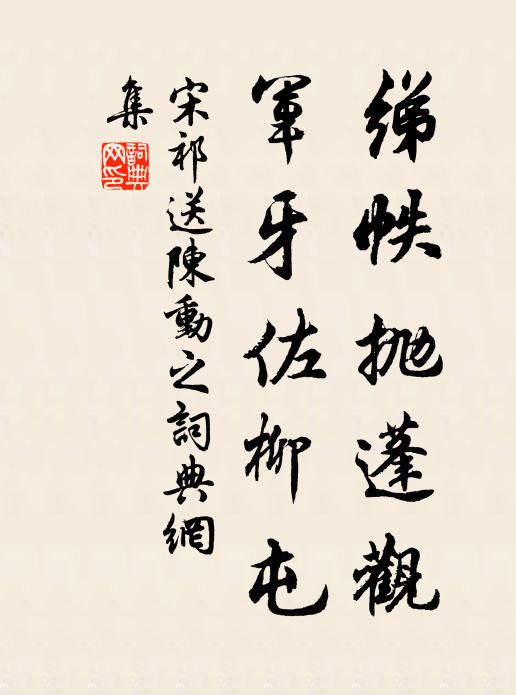 綈帙抛蓬觀
軍牙佐柳屯
宋祁送陳動之詞典網
集
詞典網印